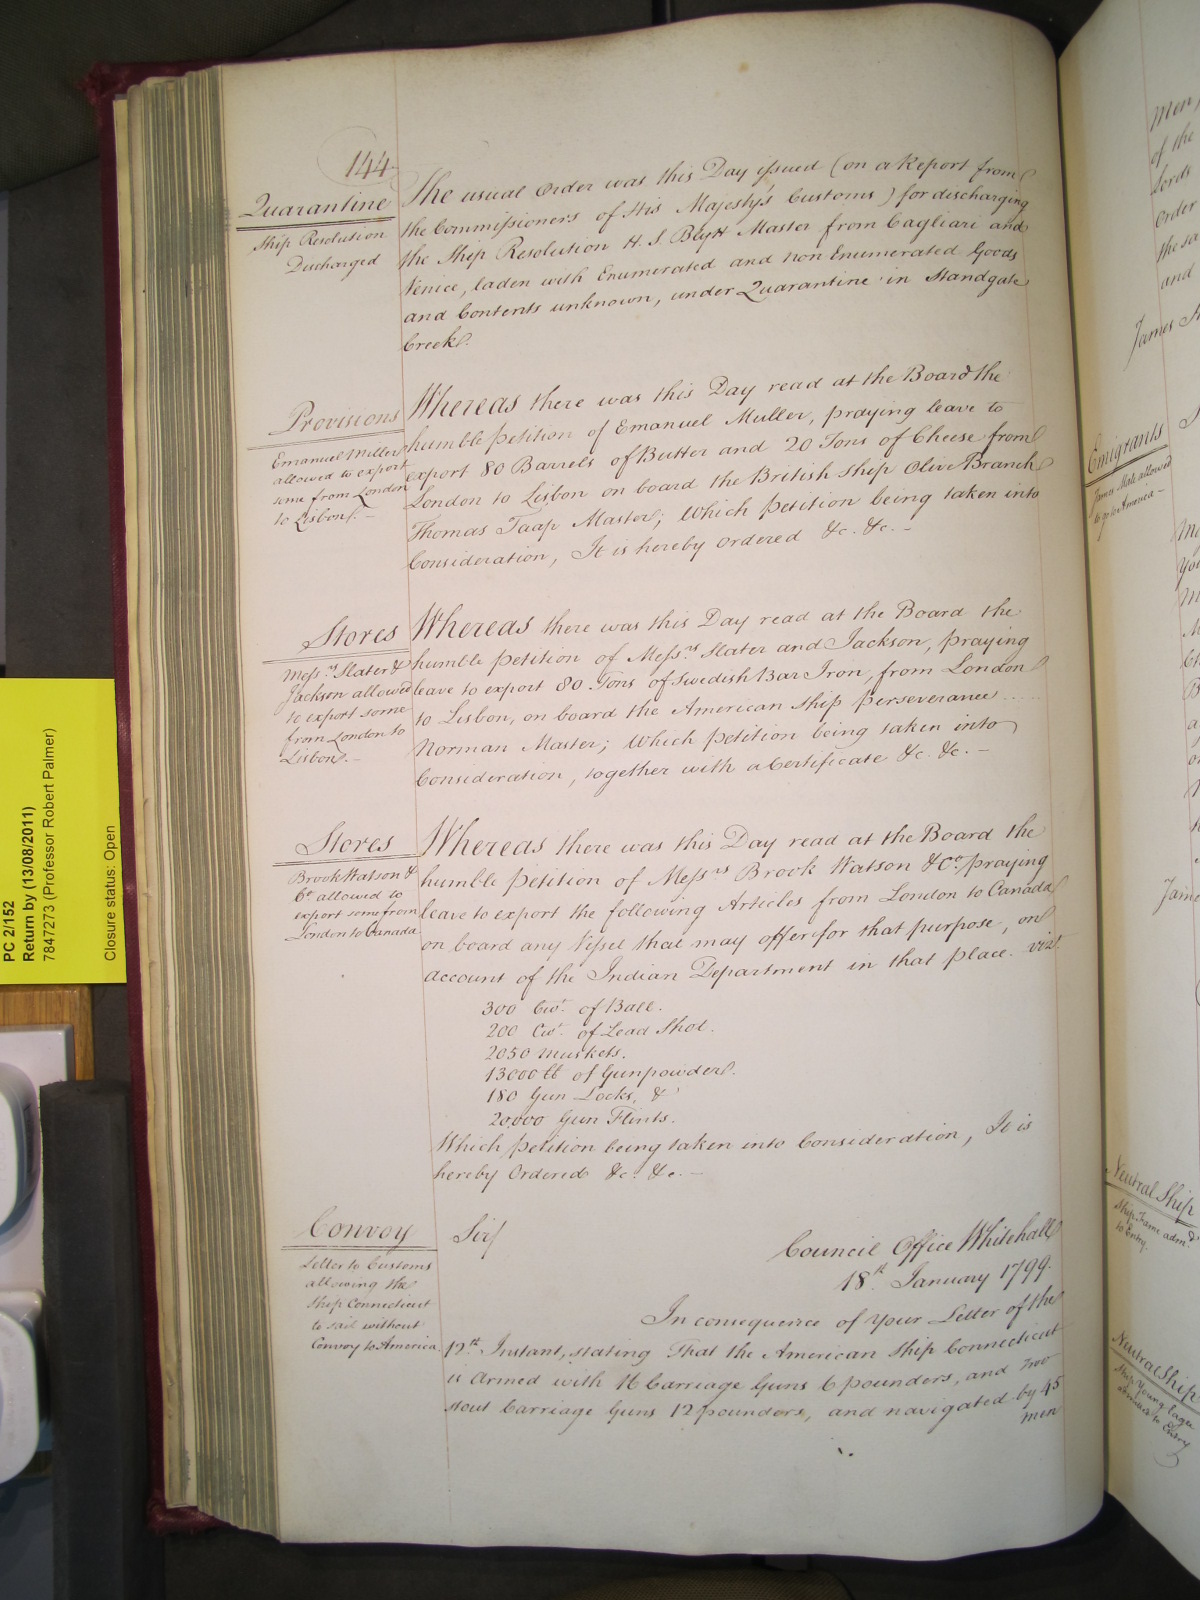 144
Quarantine
Ship Resolution
Discharged
The usual Order was this Day issued (on a Report from
the Commissioners of His Majesty's Customs) for discharging
the Ship Resolution H. S. Blyth Master from Cagliari and
Venice, laden with Enumerated and non Enumerated Goods
and Contents unknown, under Quarantine in Standgate
Creek.
Provisions
Emanuel Miller
allowed to export
some from London
to Lisbon.-
Whereas there was this Day read at the Board the
humble Petition of Emanuel Muller, praying leave to
export 80 Barrels of Butter and 20 Tons of Cheese from
London to Lisbon on board the British Ship Olive Branch
Thomas Taap Master; Which Petition being taken into
Consideration, It is hereby Ordered &c. &c. -
Stores
Messrs Slater &
Jackson allowed
to export some
from London to
Lisbon.-
Whereas there was this Day read at the Board the
humble Petition of Messrs Slater and Jackson, praying
leave to export 80 Tons of Swedish Bar Iron, from London
to Lisbon, on board the American Ship Perseverance .....
Norman Master; Which Petition being taken into
Consideration, together with a Certificate &c. &c. -
Stores
Brook Watson &
Co allowed to
export some from
London to Canada
Whereas there was this Day read at the Board the
humble Petition of Messrs Brook Watson & Co. praying
leave to export the following Articles from London to Canada
on board any Vessel that may offer for that purpose, on
account of the Indian Department in that place. vizt
300 Cwt. of Ball.
200 Cwt. of Lead Shot.
2050 Muskets.
13000 lb of Gunpowder.
180 Gun Locks, &
20,000 Gun Flints.
Which Petition being taken into Consideration, It is
hereby Ordered &c. &c. -
Convoy
Letter to Customs
allowing the
Ship Connecticut
to sail without
Convoy to America
Sir/
Council Office Whitehall
18th January 1799.
In consequence of your Letter of the
12th Instant, stating That the American Ship Connecticut
is Armed with 16 Carriage Guns 6 pounders, and Two
stout Carriage Guns 12 pounders, and navigated by 45
men
PC 2/152
Return by (13/08/2011)
7847273 (Professor Robert Palmer)
Closure status: Open
of the
Lords
Order
the sa
and
James
Emigrants
James Hale allowed
to go to America-
Neutral Ship
to Entry.
Neutral Ship
Ship Young Eagle
admitted to Entry